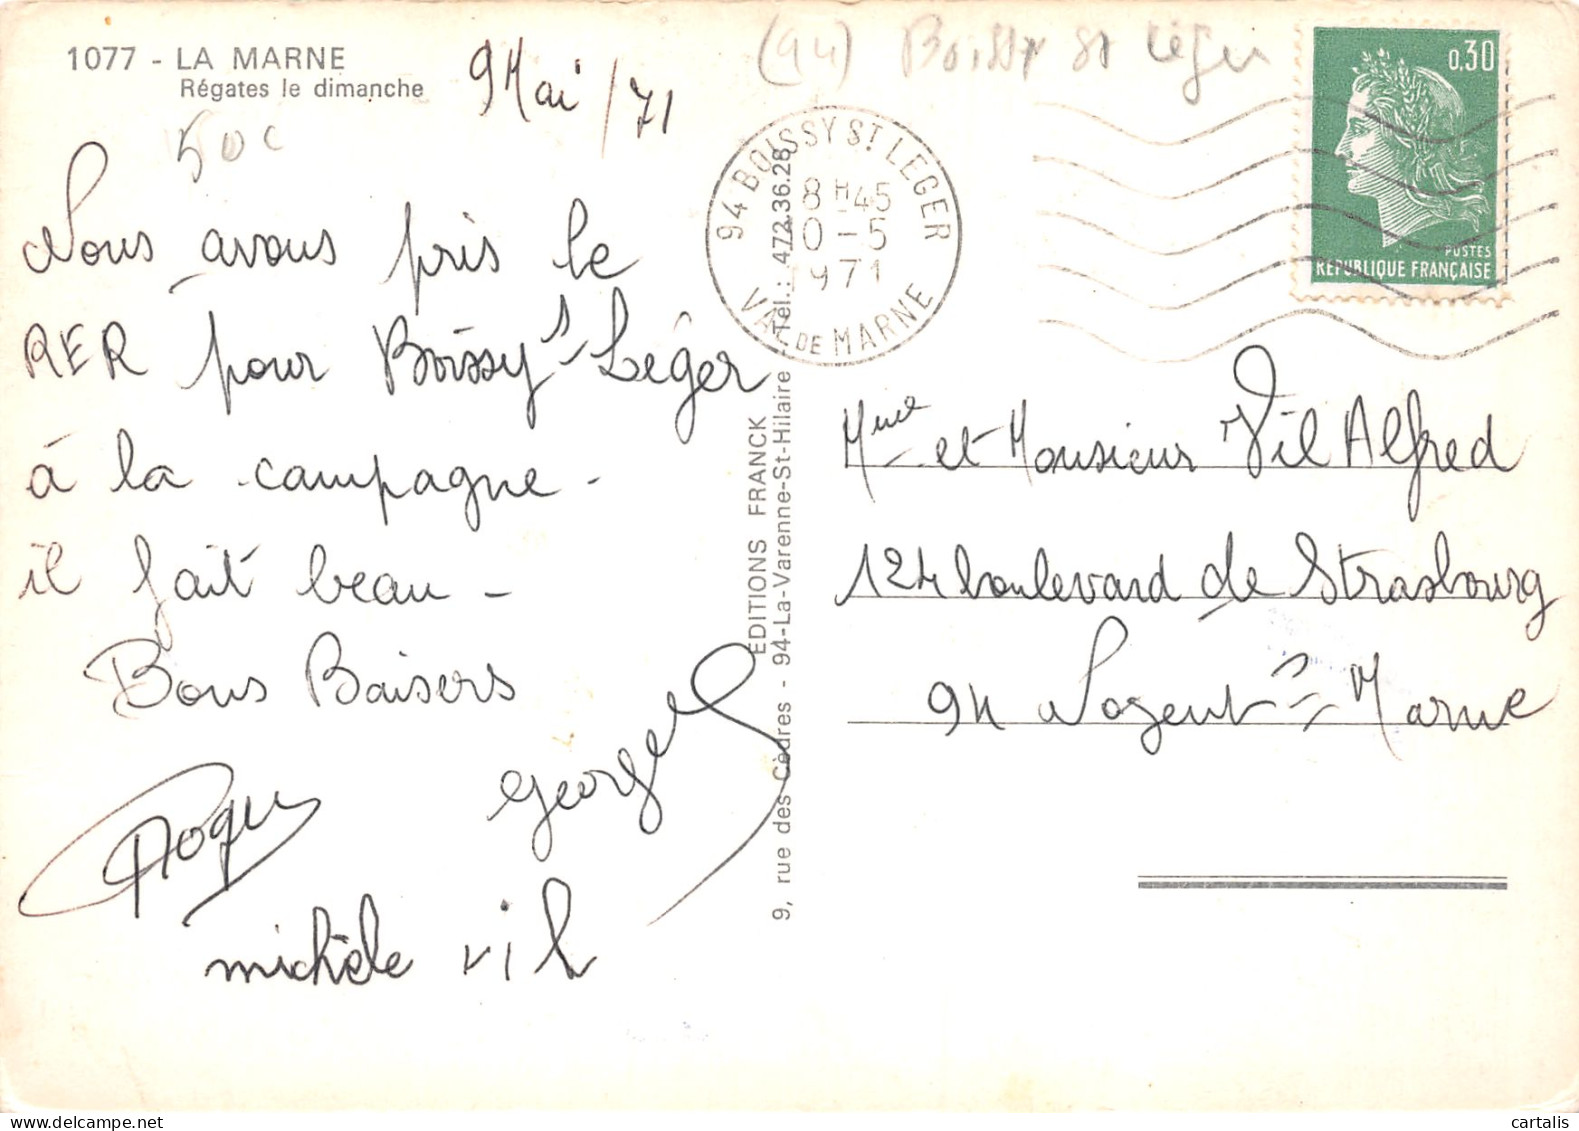 1077 - LA MARNE
Régates le dimanche
9 Mai /71
(94) Boissy St Léger
50c
94 BOISSY ST LEGER
8H45
10-5
1971
VAL DE MARNE
0,30
POSTES
REPUBLIQUE FRANÇAISE
Nous avons pris le
RER pour Boissy St Léger
à la campagne -
il fait beau -
Bons Baisers
Georges
Roger
michèle vil
EDITIONS FRANCK
9, rue des Cèdres - 94-La-Varenne-St-Hilaire - Tél.: 472.36.28
Mme et Monsieur Vil Alfred
124 boulevard de Strasbourg
94 Nogent s/ Marne
cartalis